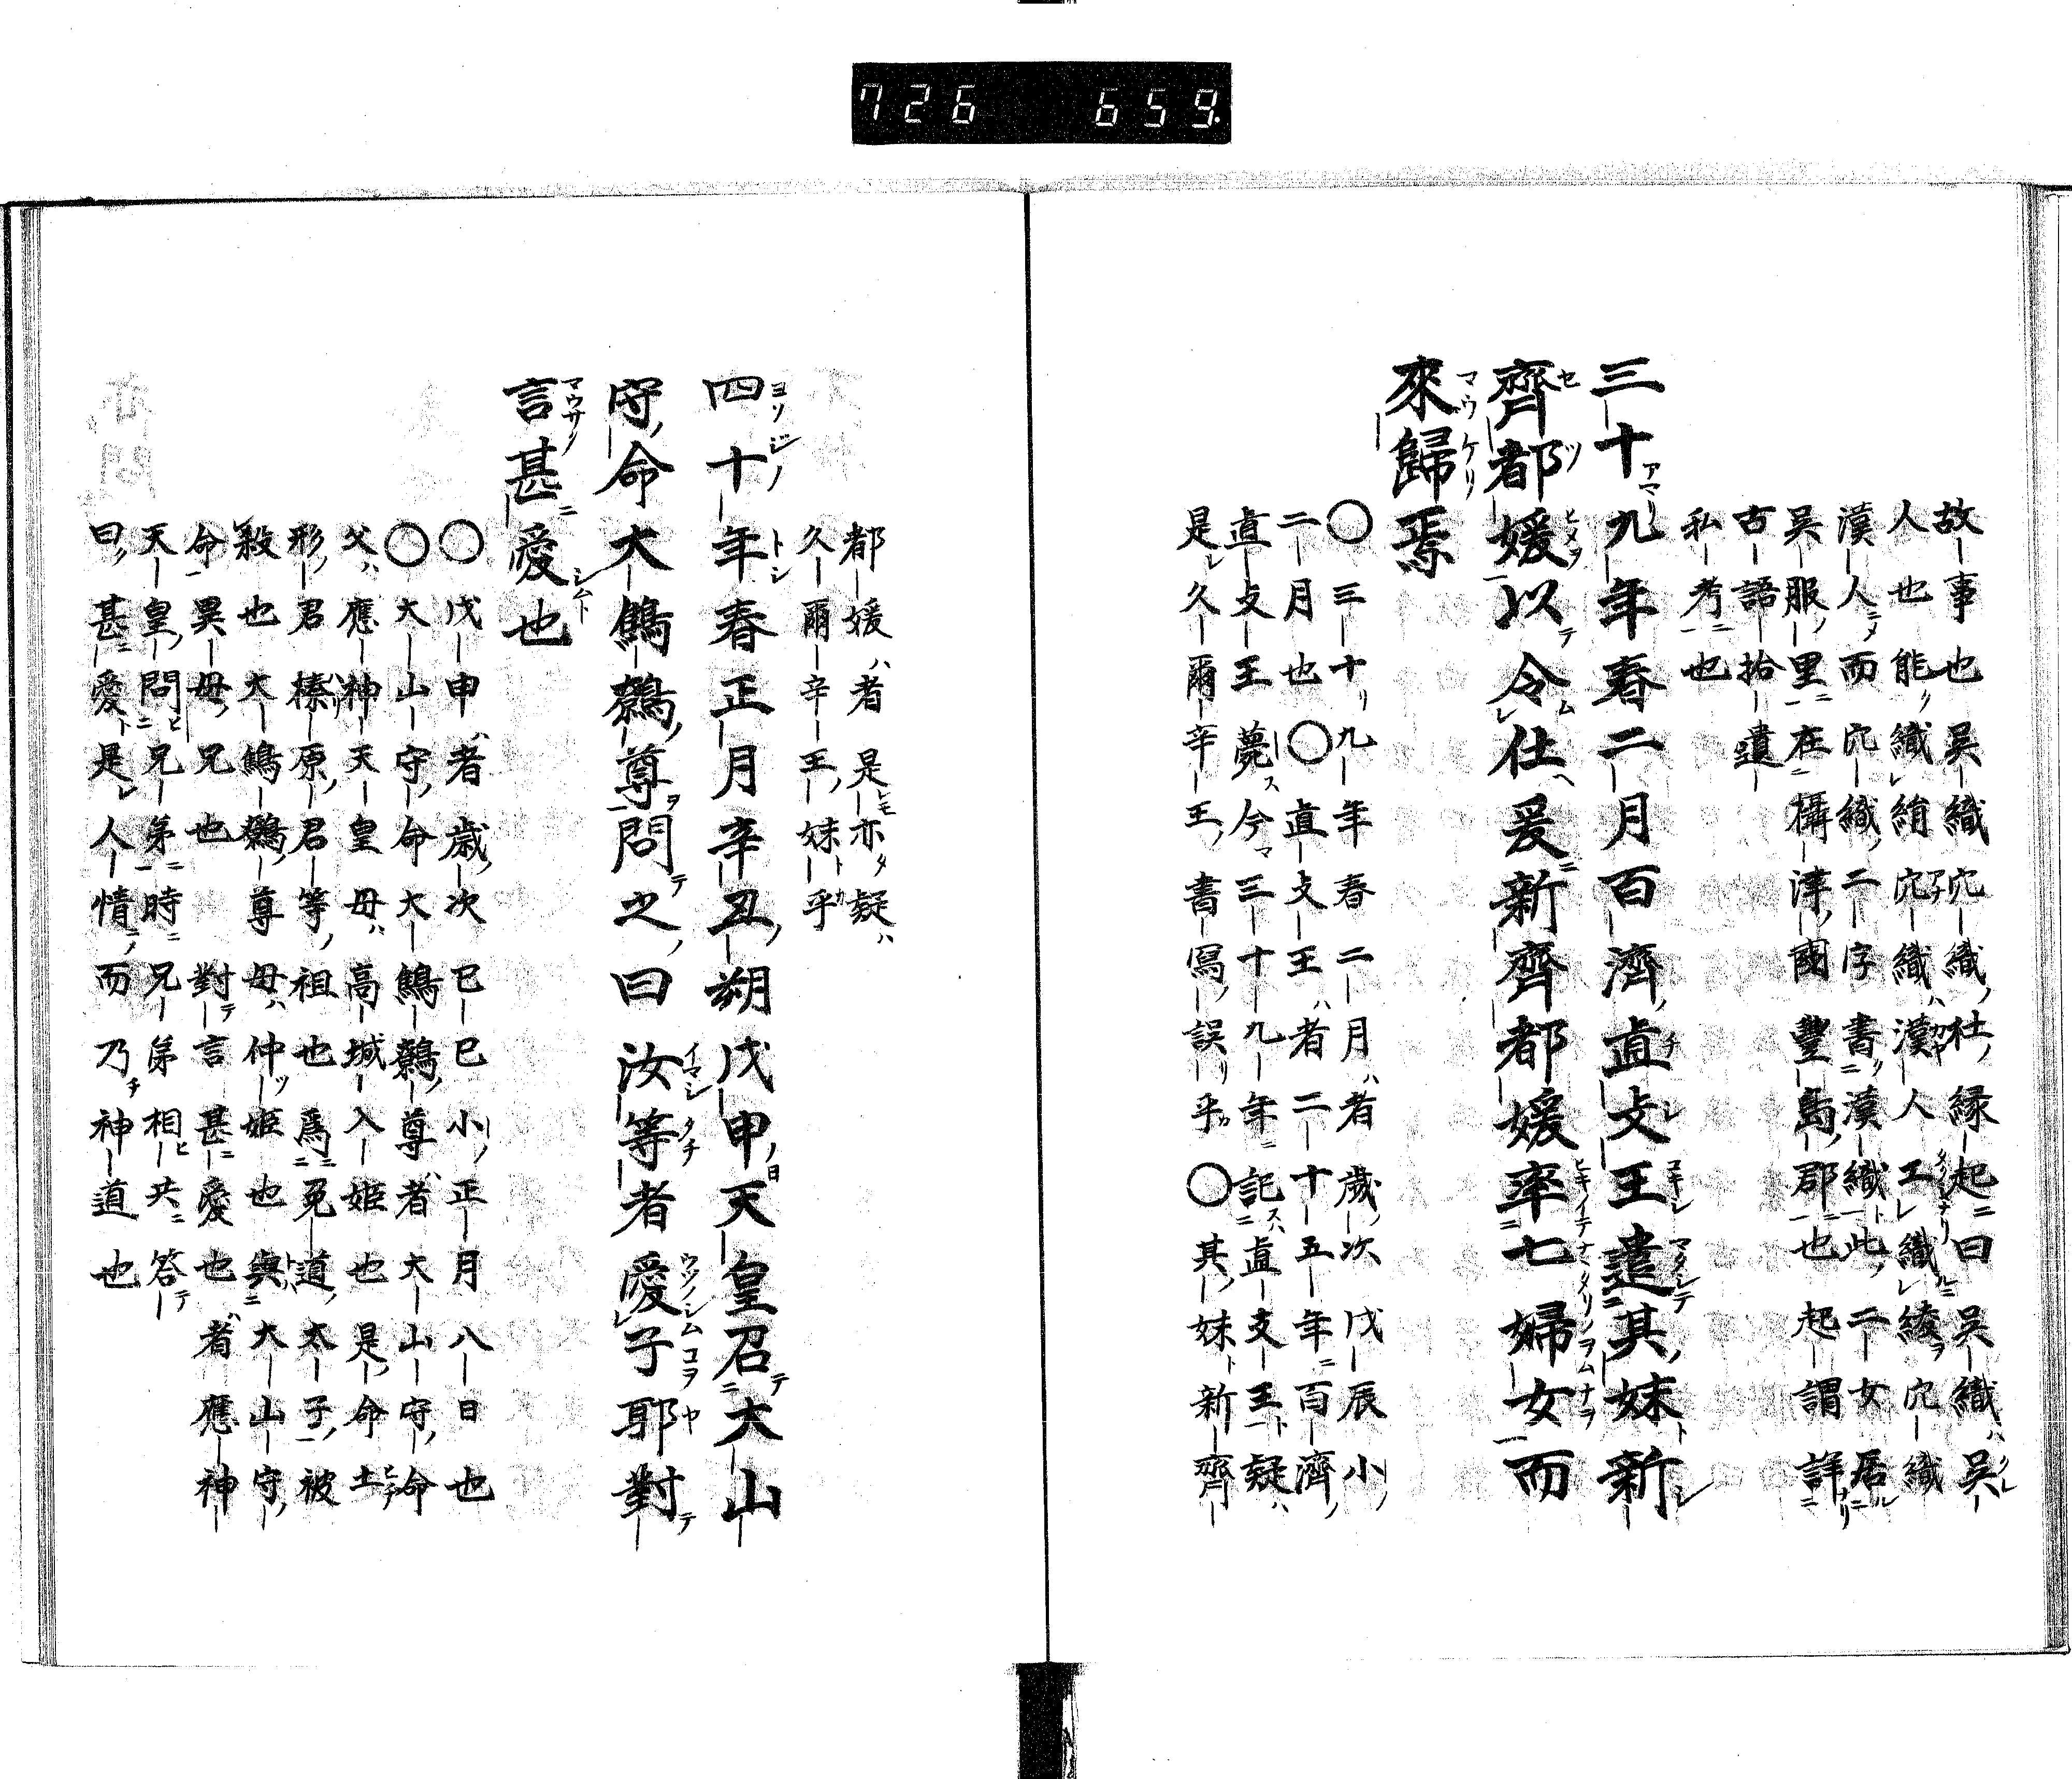 726 659
故事也吳織穴織社緣起曰吳織吳
人也能織絹穴織漢人工織綾穴織
漢人而穴織二字書漢織此二女居
吳服里在攝津國豐島郡也起謂詳
古語拾遺
私考也
三十九年春二月百濟直支王遣其妹新
齊都媛以令仕爰新齊都媛率七婦女而
來歸焉
〇三十九年春二月者歲次戊辰小
二月也〇直支王者二十五年百濟
直支王薨今三十九年記直支王疑
是久爾辛王書寫誤乎〇其妹新齊
都媛者是亦疑
久爾辛王妹乎
四十年春正月辛丑朔戊申天皇召大山
守命大鷦鷯尊問之曰汝等者愛子耶對
言甚愛也
〇戊申者歲次己巳小正月八日也
〇大山守命大鷦鷯尊者大山守命
父應神天皇母高城入姬也是命土
形君榛原君等祖也爲菟道太子被
殺也大鷦鷯尊母仲姬也與大山守
命異母兄也 對言甚愛也者應神
天皇問兄弟時兄弟相共答
曰甚愛是人情而乃神道也